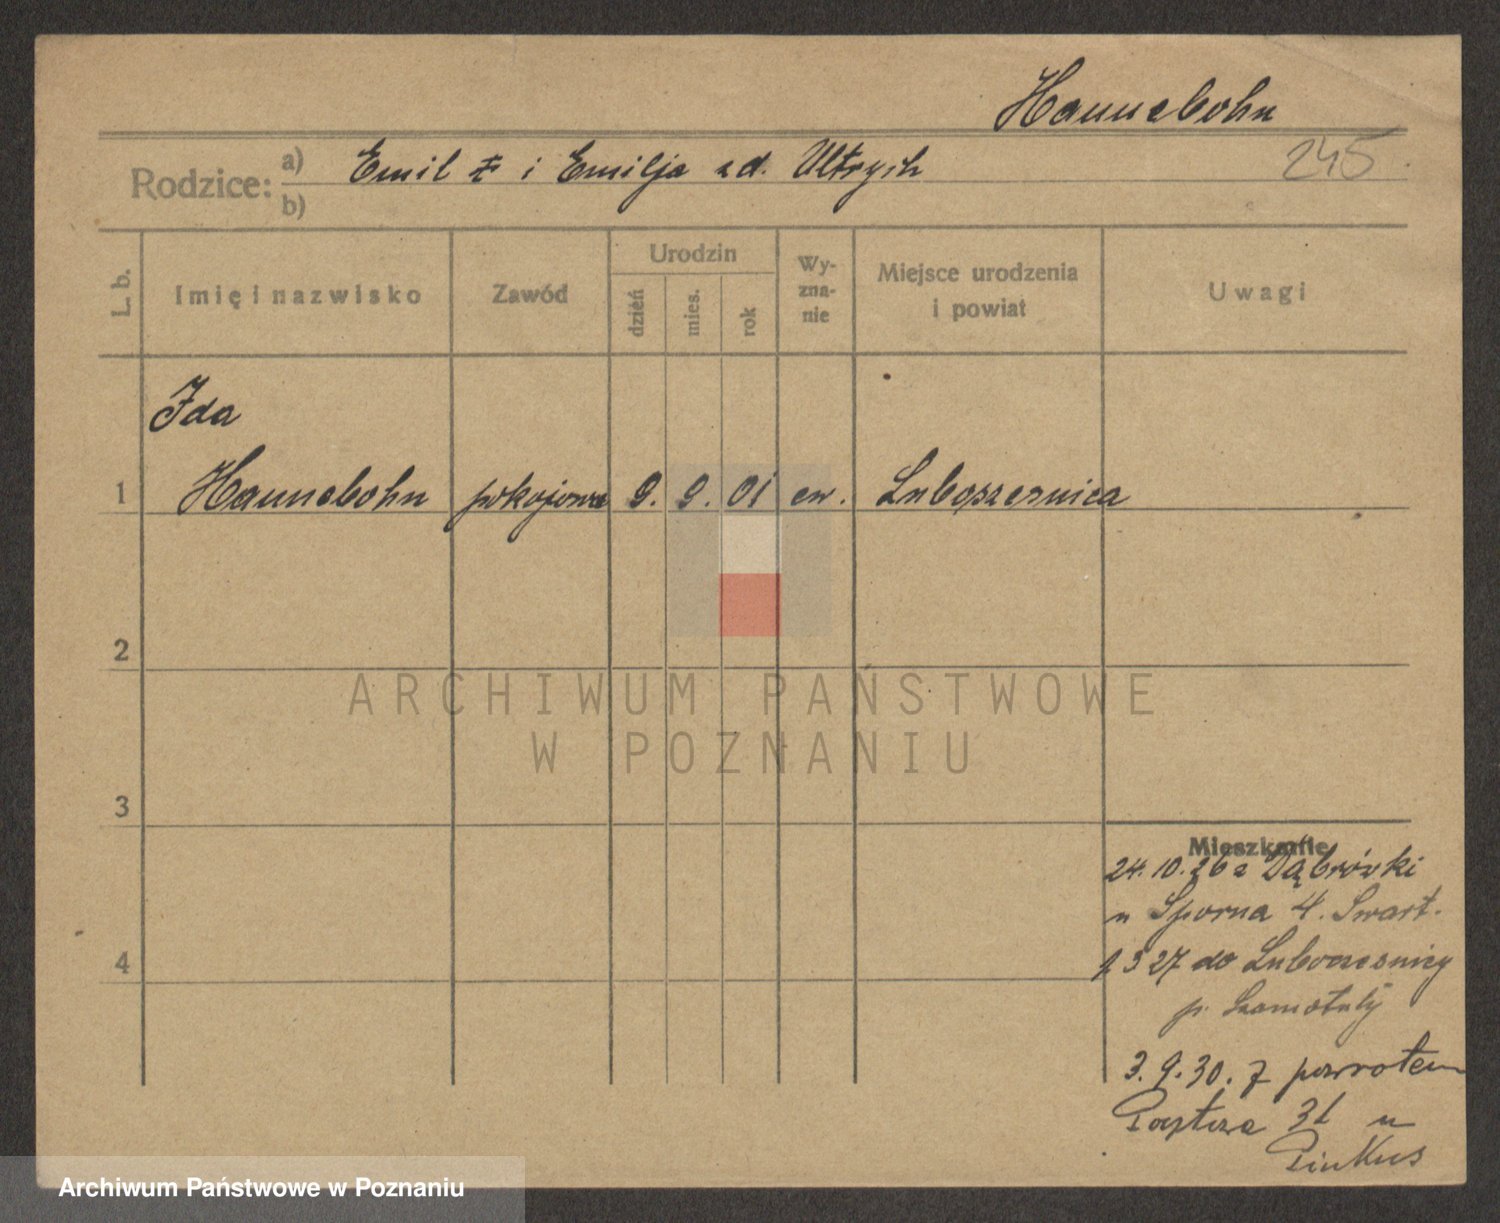 Hannebohn
245
Rodzice: a) Emil ‡ i Emilja zd. Ultrych
b)
L. b.
Imię i nazwisko
Zawód
Urodzin
dzień
mies.
rok
Wy-
zna-
nie
Miejsce urodzenia
i powiat
Uwagi
Ida
1 Hannebohn pokojowa 9. 9. 01 ew. Luboszesnica
2
ARCHIWUM PAŃSTWOWE
W POZNANIU
3
Mieszkanie
24.10.26 z Dąbrówki
n Sporna 4. Swart.
4
1 3 27 do Luboczesnicy
p. Szamotuły
3.9.30. z powrotem
31 u
Pinkus
Archiwum Państwowe w Poznaniu